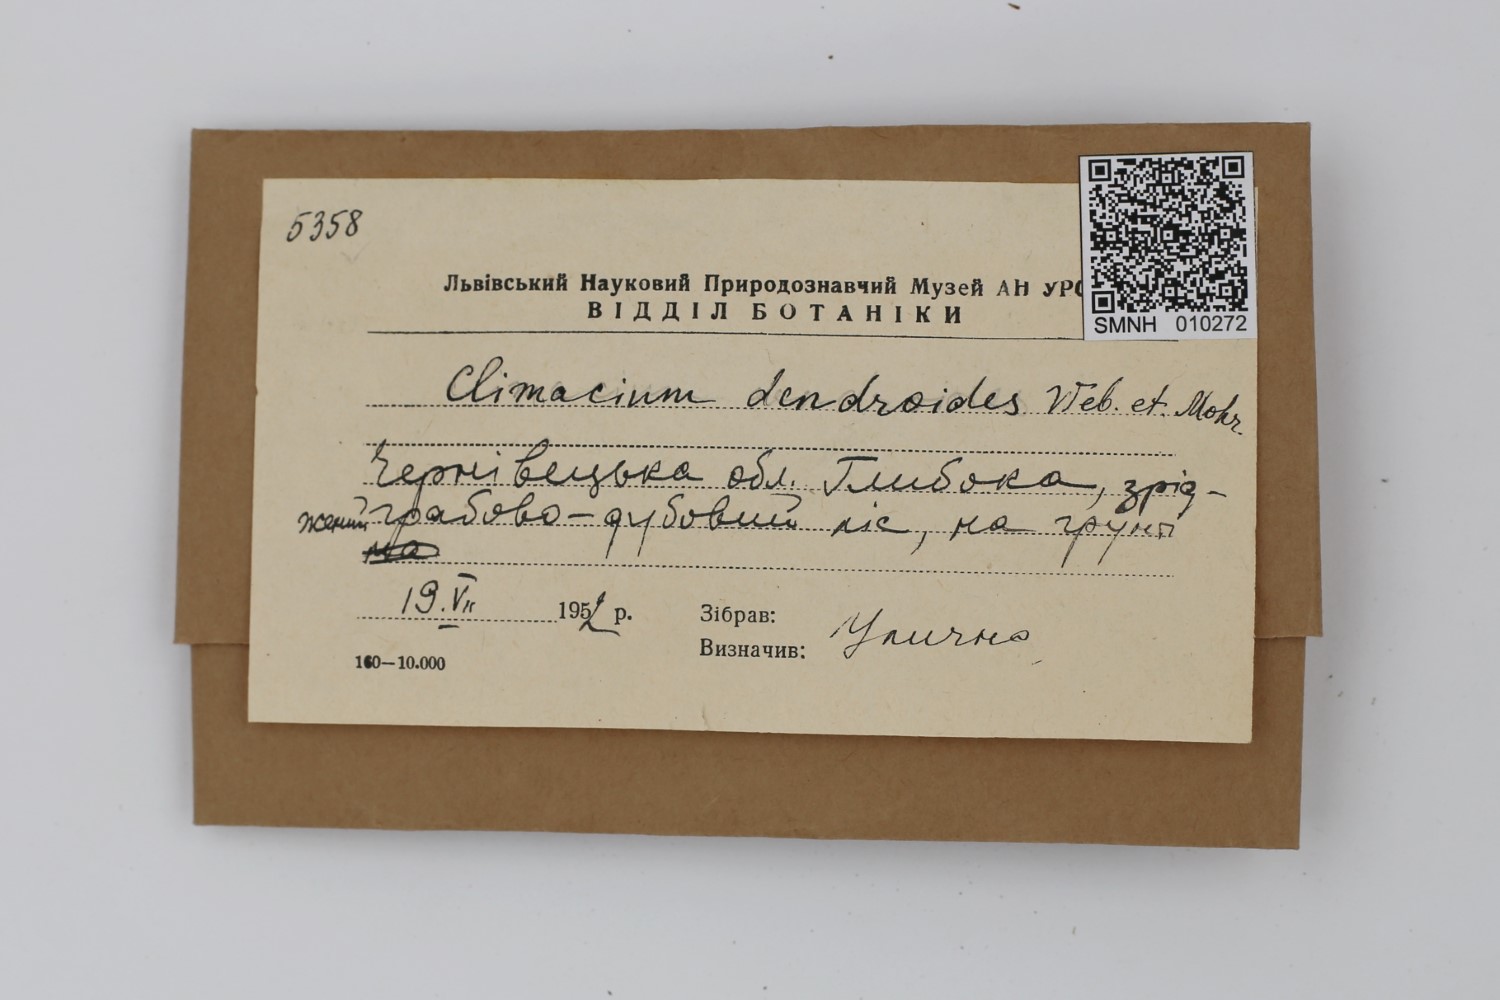 5358
Львівський Науковий Природознавчий Музей АН УРС
ВІДДІЛ БОТАНІКИ
SMNH 010272
Climacium dendroides Web. et. Mohr.
Чернівецька обл. Глибока, зрід-
жений грабово-дубовий ліс, на ґрунті
19.VII 1952 р.
Зібрав:
Визначив: Улична
160—10.000